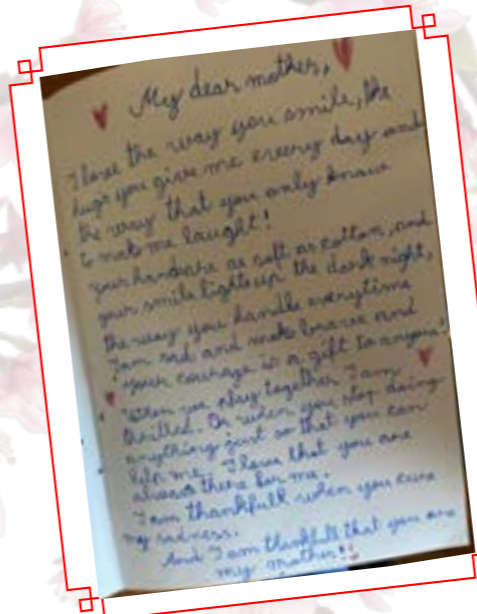 My dear mother,
I love the way you smile, the
hugs you give me every day and
the way that you only know
to mak me laught!
your hands are as soft as cotton, and
your smile lights up the dark night,
the way you handle everytime
I am sad, and mak brave and
your courage is a gift to anyone!
When we play together I am
thrilled. Or when you stop doing
anything just so that you can
help me. I love that you are
always there for me.
I am thankfull when you cure
my sadness.
And I am thankfull that you are
my mother!!